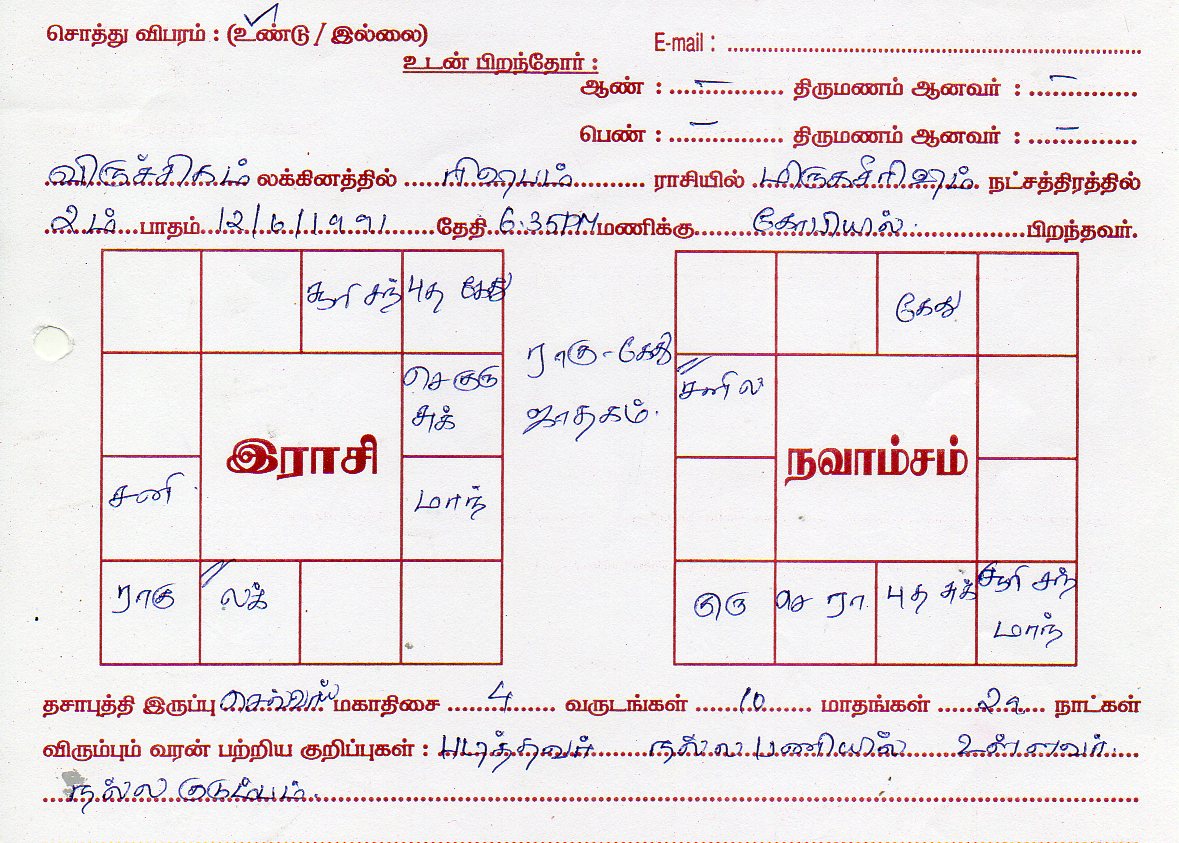 சொத்து விபரம் : (உண்டு / இல்லை)
E-mail :
உடன் பிறந்தோர் :
ஆண் : – திருமணம் ஆனவர் : –
பெண் : – திருமணம் ஆனவர் : –
விருச்சிகம் லக்கினத்தில் ரிஷபம் ராசியில் மிருகசீரிஷம் நட்சத்திரத்தில்
2ம் பாதம் 12/6/1991 தேதி 6.35PM மணிக்கு கோபியில் பிறந்தவர்.
சூரி சந் புத கேது
கேது
ராகு - கேது
செ குரு
சுக்
சனி ல
ஜாதகம்.
இராசி
நவாம்சம்
சனி
மாந்
ராகு
லக்
குரு
செ ரா
புத சுக்
சூரி சந்
மாந்
தசாபுத்தி இருப்பு செவ்வாய் மகாதிசை 4 வருடங்கள் 10 மாதங்கள் 29 நாட்கள்
விரும்பும் வரன் பற்றிய குறிப்புகள் : படித்தவர் நல்ல பணியில் உள்ளவர்.
நல்ல குடும்பம்.